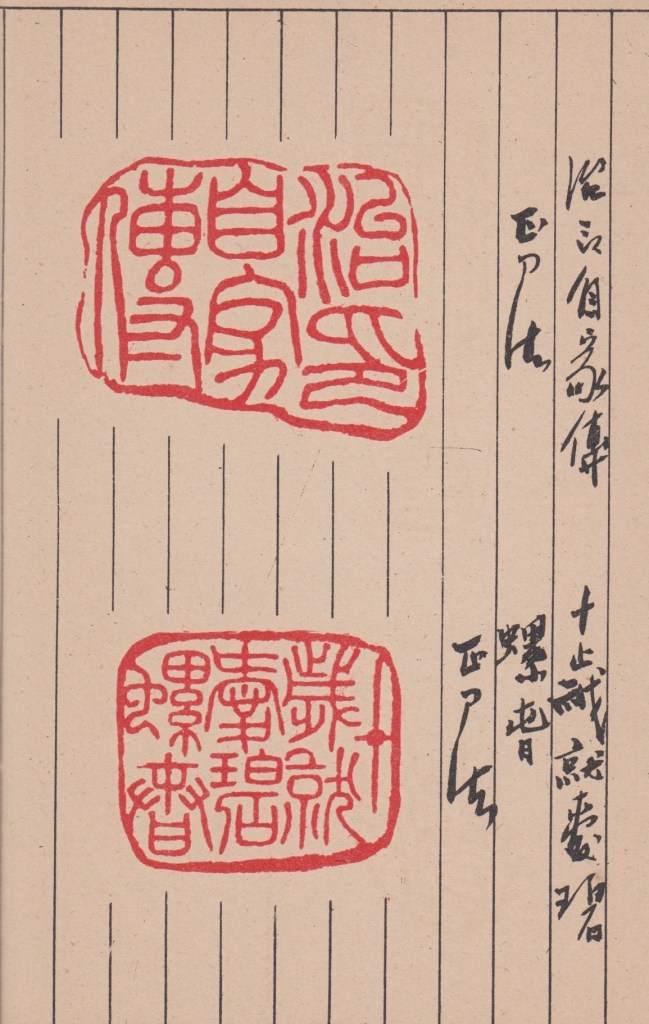 治印自家傳
正刀法
治印
自家
傳
十歲就愛碧
螺春
正刀法
十
歲就
愛碧
螺春